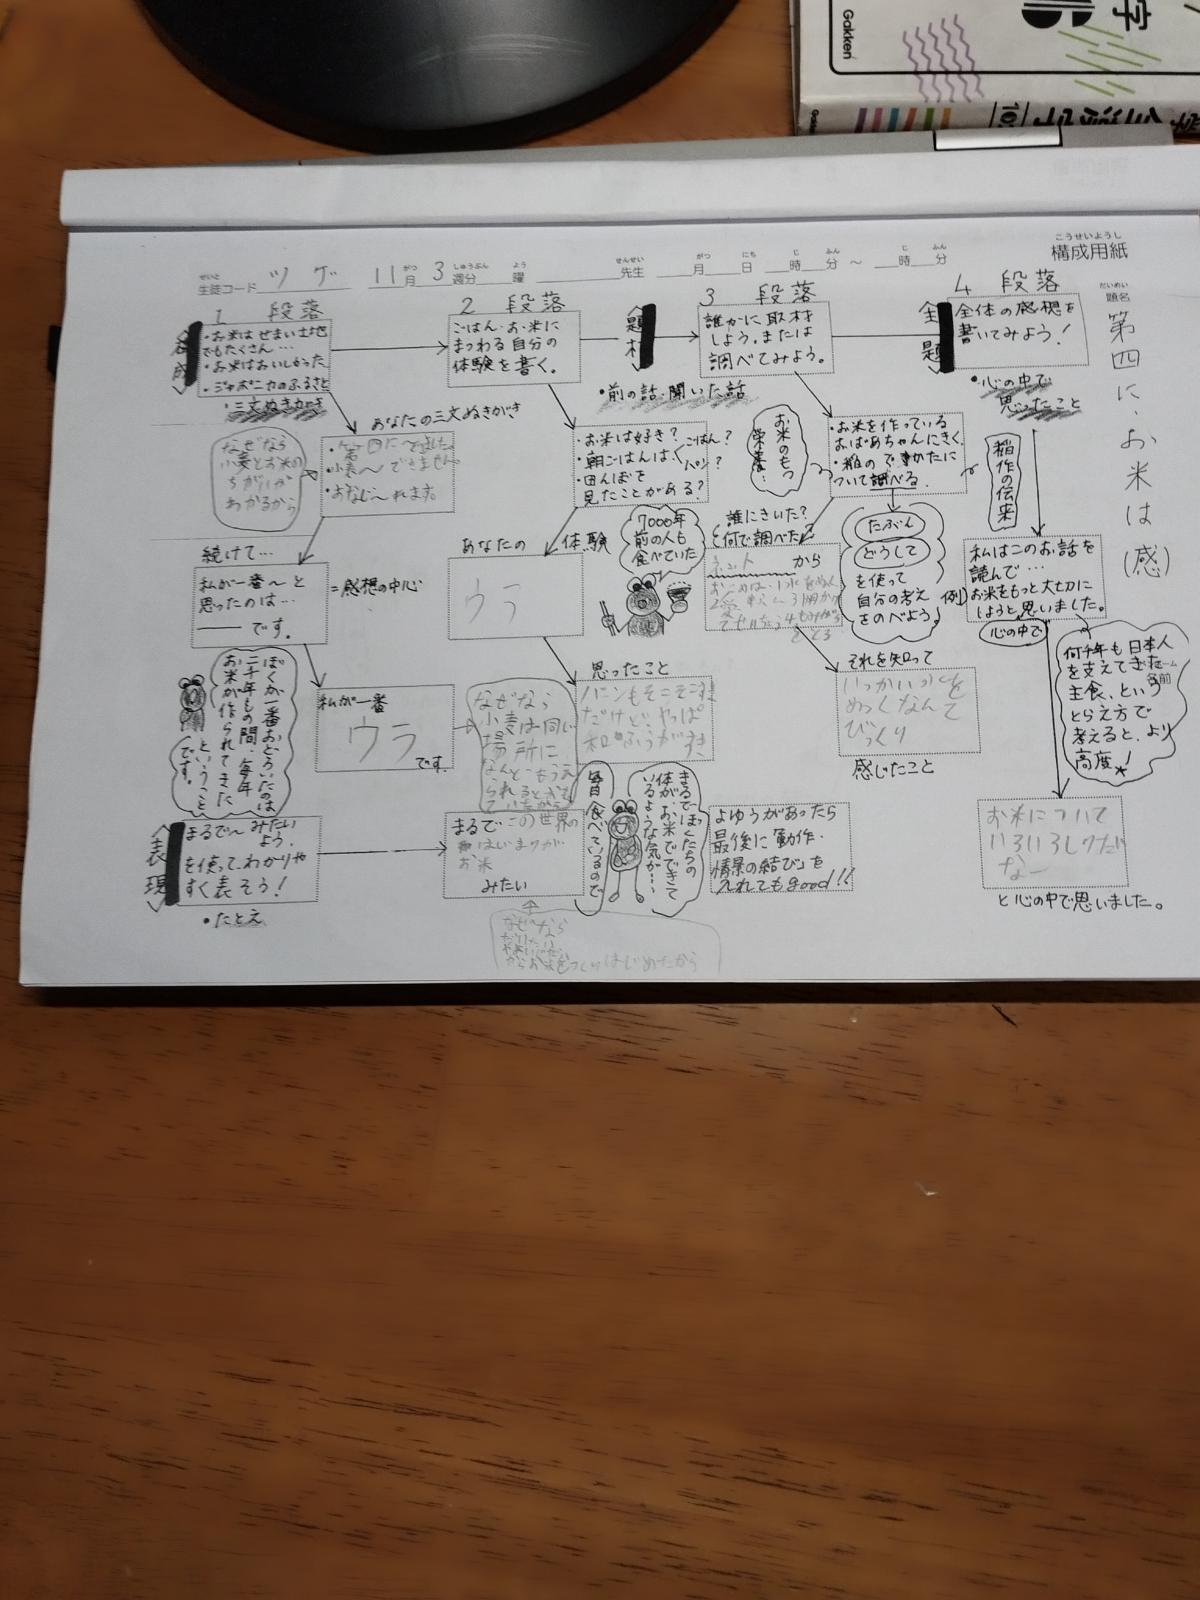 Gakken
Gakken
構成用紙
こうせいようし
生徒コード ツゲ 11月3週分 曜 先生 月 日 時 分 ～ 時 分
だいめい
題名
第四に、お米は(感)
1 段落
・お米はせまい土地
でもたくさん…
・お米はおいしかった
・ジャポニカのふるさと
・三文ぬきがき
あなたの三文ぬきがき
なぜなら
小麦とお米の
ちがいが
わかるから
続けて…
私が一番～と
思ったのは…
です。
=感想の中心
ぼくが一番おどろいたのは
二千年もの間、毎年
お米が作られてきた
ということ
です。
私が一番
ウラ
です。
表現
まるで～みたい
よう。
を使って、わかりや
すく表そう！
・たとえ
まるでこの世界の
はじまりが
お米
みたい
なぜなら
2 段落
ごはん・お米に
まつわる自分の
体験を書く。
題材
・前の話・聞いた話
・お米は好き？
・朝ごはんは ごはん？
パン？
・田んぼを
見たことがある？
あなたの 体験
ウラ
7000年
前の人も
食べていた
思ったこと
パンもそこそこ
だけど、やっぱ
なぜなら
小麦は同じ
場所に
毎日食べているので
まるでぼくたちの
体がお米でできて
いるような気が…
3 段落
誰かに取材
しよう。または
調べてみよう。
お米のもつ
栄養…
・お米を作っている
おばあちゃんにきく
ついて調べる。
誰にきいた？
何で調べた？
から
たぶん
どうして
を使って
自分の考え
をのべよう。
それを知って
びっくり
感じたこと
よゆうがあったら
最後に「動作・
情景の結び」を
入れてもgood!!
4 段落
全体の感想を
書いてみよう！
・心の中で
思ったこと
稲作の伝来
例
私はこのお話を
読んで…
お米をもっと大切に
しようと思いました。
心の中で
何千年も日本人
を支えてきた
主食、という
とらえ方で
考えると、より
高度！
お米について
いろいろしりたい
なー
と心の中で思いました。